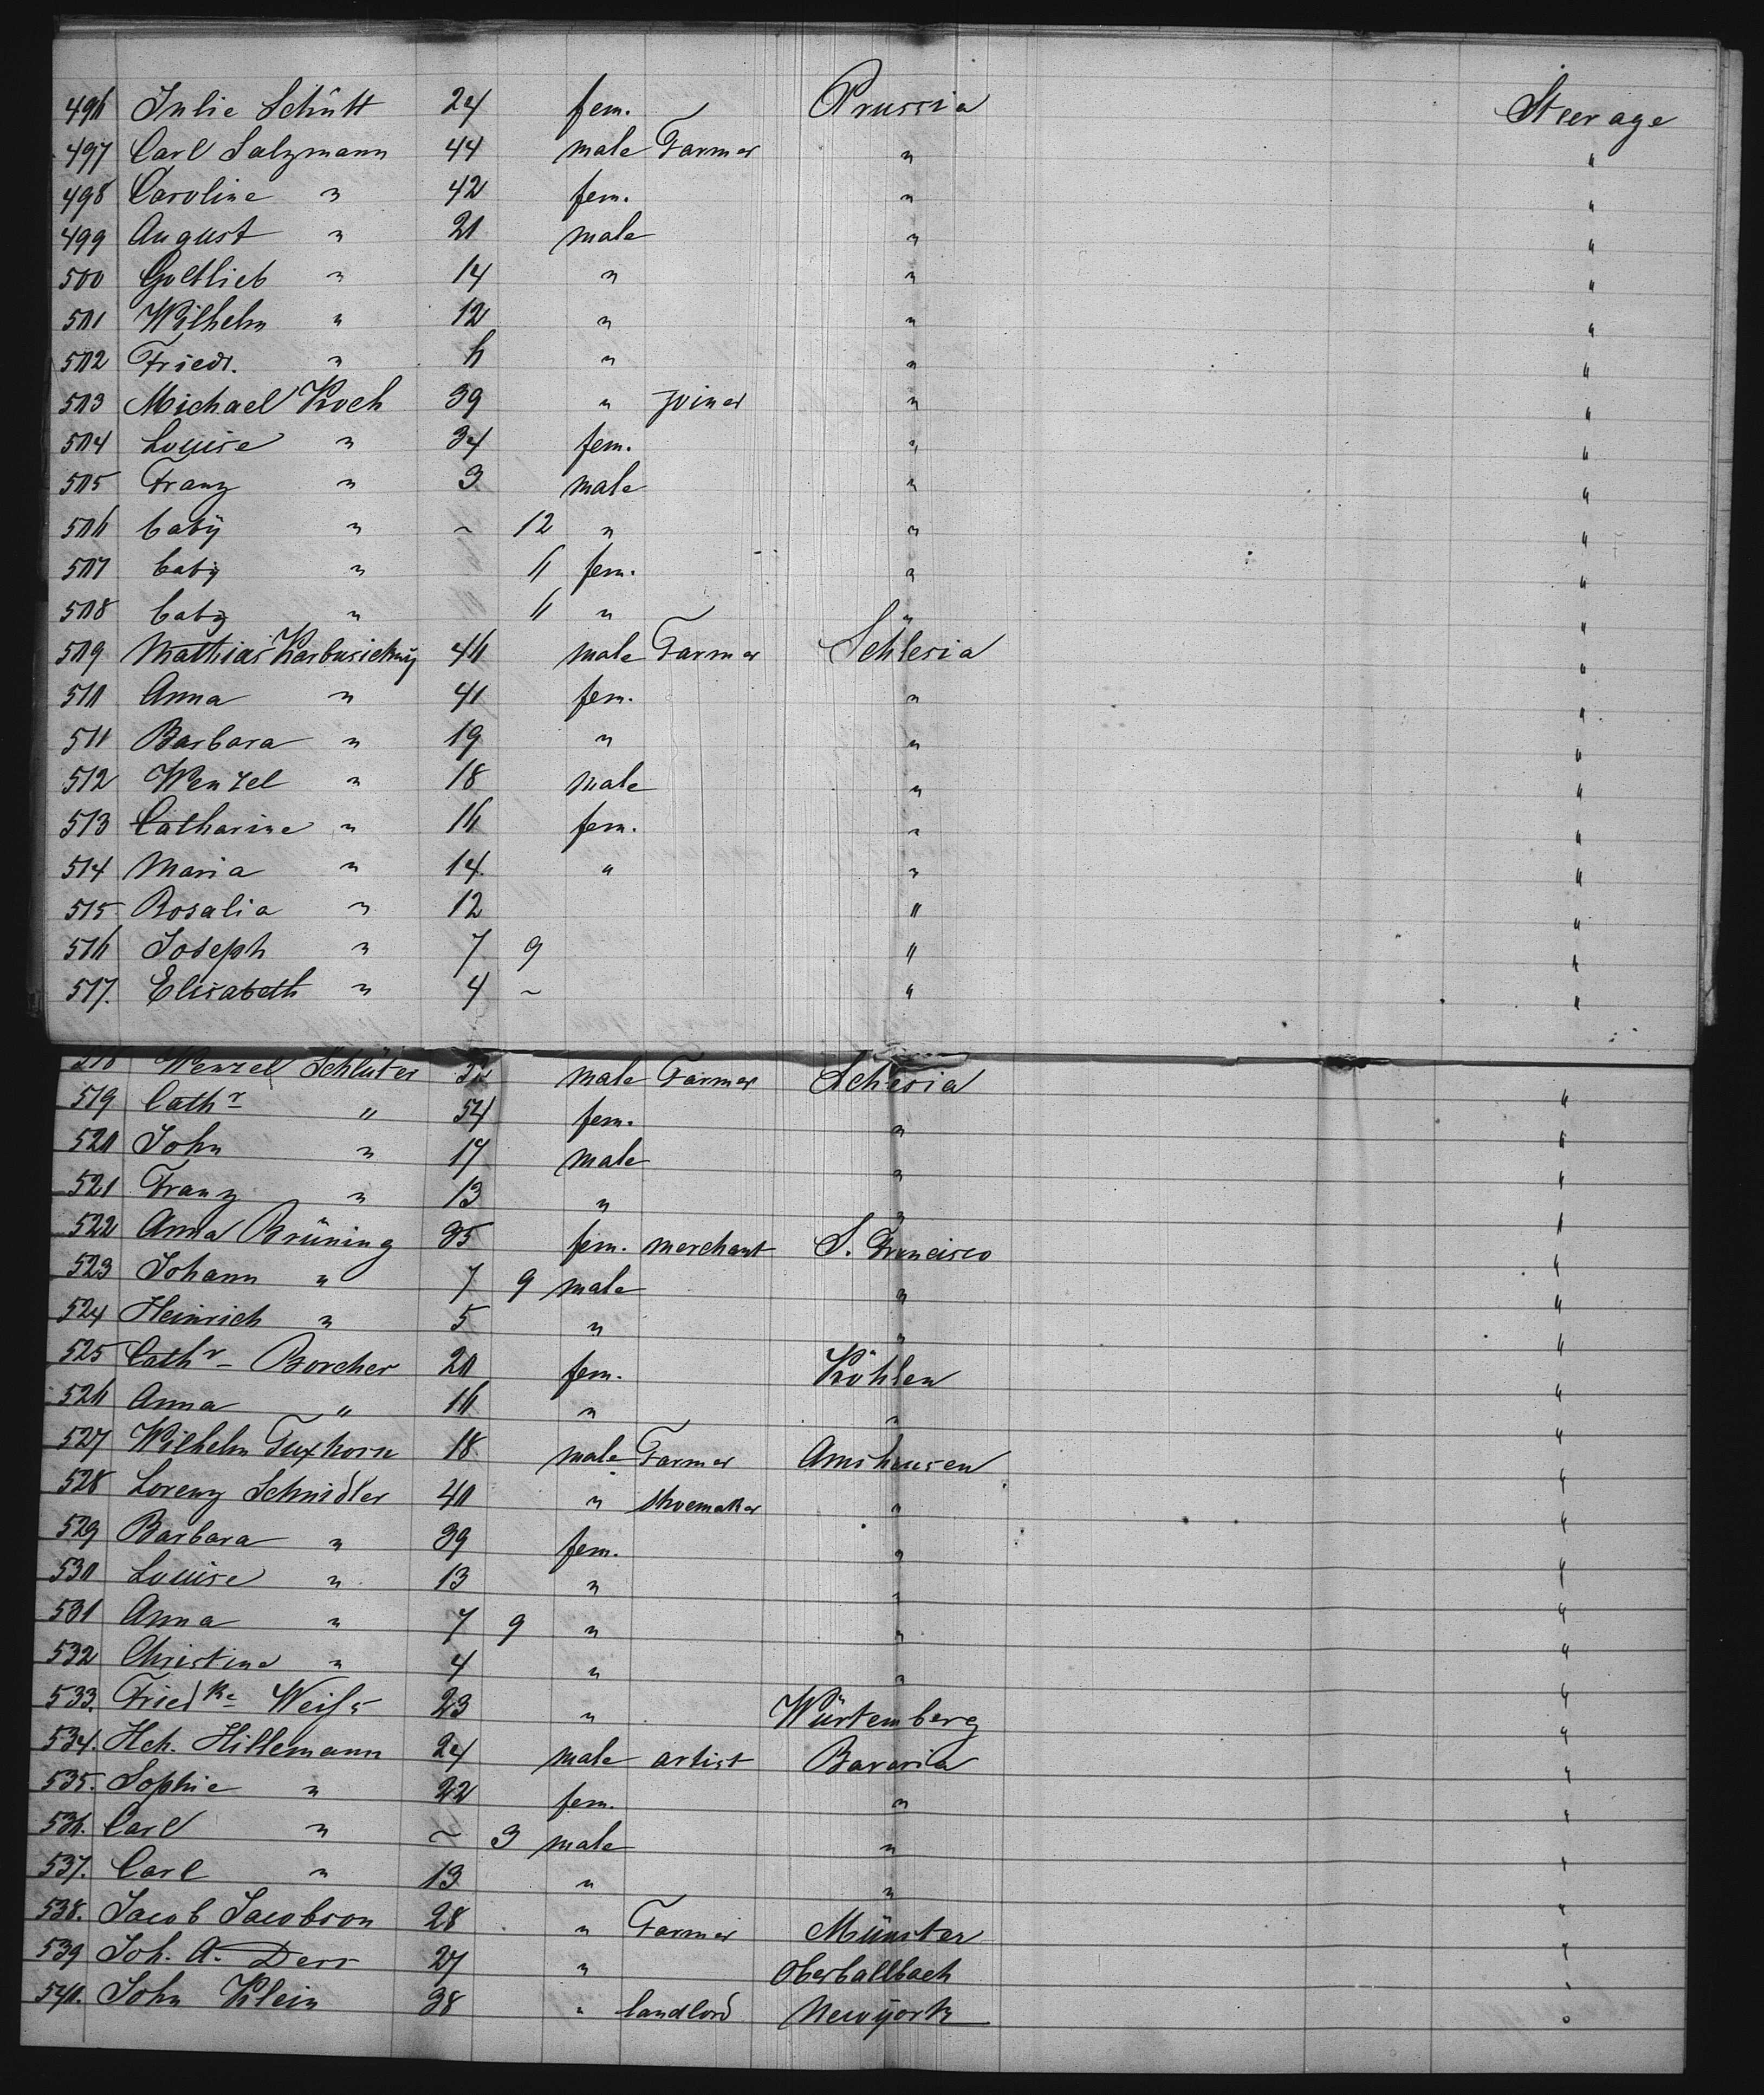 496 Julie Schütt 24 fem. Prussia Steerage
497 Carl Salzmann 44 male Farmer " "
498 Caroline " 42 fem. " "
499 August " 21 male " "
500 Gottlieb " 14 " " "
501 Wilhelm " 12 " " "
502 Friedr. " 6 " " "
503 Michael Koch 39 " joiner " "
504 Louise " 34 fem. " "
505 Franz " 3 male " "
506 baby " ~ 12 " " "
507 baby " " fem. " "
508 baby " " " " "
509 Mathias Karbusickuÿ 46 male Farmer Schlesia "
510 Anna " 41 fem. " "
511 Barbara " 19 " " "
512 Wenzel " 18 male " "
513 Catharine " 16 fem. " "
514 Maria " 14 " " "
515 Rosalia " 12 " "
516 Joseph " 7 9 " "
517. Elisabeth " 4 ~ " "
518 Wenzel Schlüter male Farmer Schesia "
519 Cathr " 54 fem. " "
520 John " 17 male " "
521 Franz " 13 " " "
522 Anna Brüning 35 fem. merchant S. Francisco "
523 Johann " 7 9 male " "
524 Heinrich " 5 " " "
525 Cathr Borcher 20 fem. Köhlen "
526 Anna " 16 " " "
527 Wilhelm Tuxhorn 18 male Farmer Amshausen "
528 Lorenz Schnidler 40 " shoemaker " "
529 Barbara " 39 fem. " "
530 Louise " 13 " " "
531 Anna " 7 9 " " "
532 Christine " 4 " " "
533. Friedke Weifs 23 " Würtemberg "
534. Hch. Hillemann 24 male artist Bavaria "
535. Sophie " 22 fem. " "
536. Carl " ~ 3 male " "
537. Carl " 13 " " "
538. Jacob Jacobson 28 " Farmer Münster "
539 Joh. A. Derr 27 " Oberballbach "
540. John Klein 38 " landlord Newÿork "